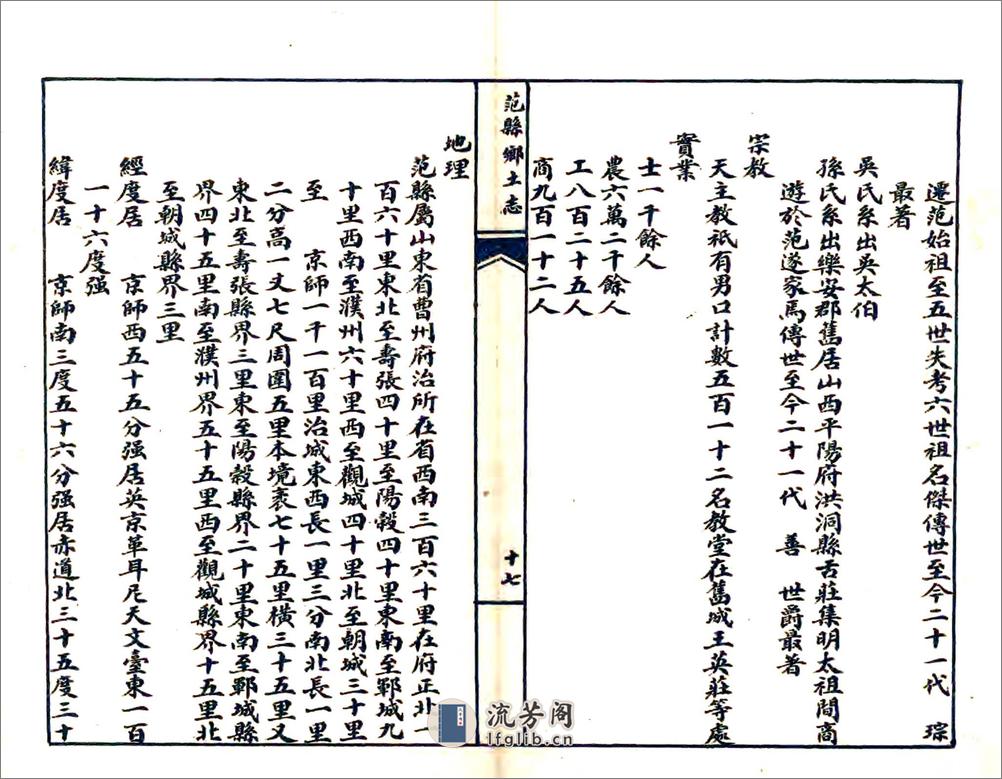 遷范始祖至五世失考六世祖名傑傳世至今二十一代　琮
最著
吳氏系出吳太伯
孫氏系出樂安郡舊居山西平陽府洪洞縣古莊集明太祖間商
遊於范遂家焉傳世至今二十一代　善　世爵最著
宗教
天主教祇有男口計數五百一十二名教堂在舊城王英莊等處
實業
士一千餘人
農六萬二千餘人
工八百二十五人
商九百一十二人
范縣鄉土志
十七
地理
范縣屬山東省曹州府治所在省西南三百六十里在府正北一
百六十里東北至壽張四十里至陽穀四十里東南至鄆城九
十里西南至濮州六十里西至觀城四十里北至朝城三十里
至　京師一千一百里治城東西長一里三分南北長一里
二分高一丈七尺周圍五里本境袤七十五里橫三十五里又
東北至壽張縣界三里東至陽穀縣界二十里東南至鄆城縣
界四十五里南至濮州界五十五里西至觀城縣界十五里北
至朝城縣界三里
經度居　京師西五十五分强居英京革耳尼天文臺東一百
一十六度强
緯度居　京師南三度五十六分强居赤道北三十五度三十
流芳阁
lfglib.cn